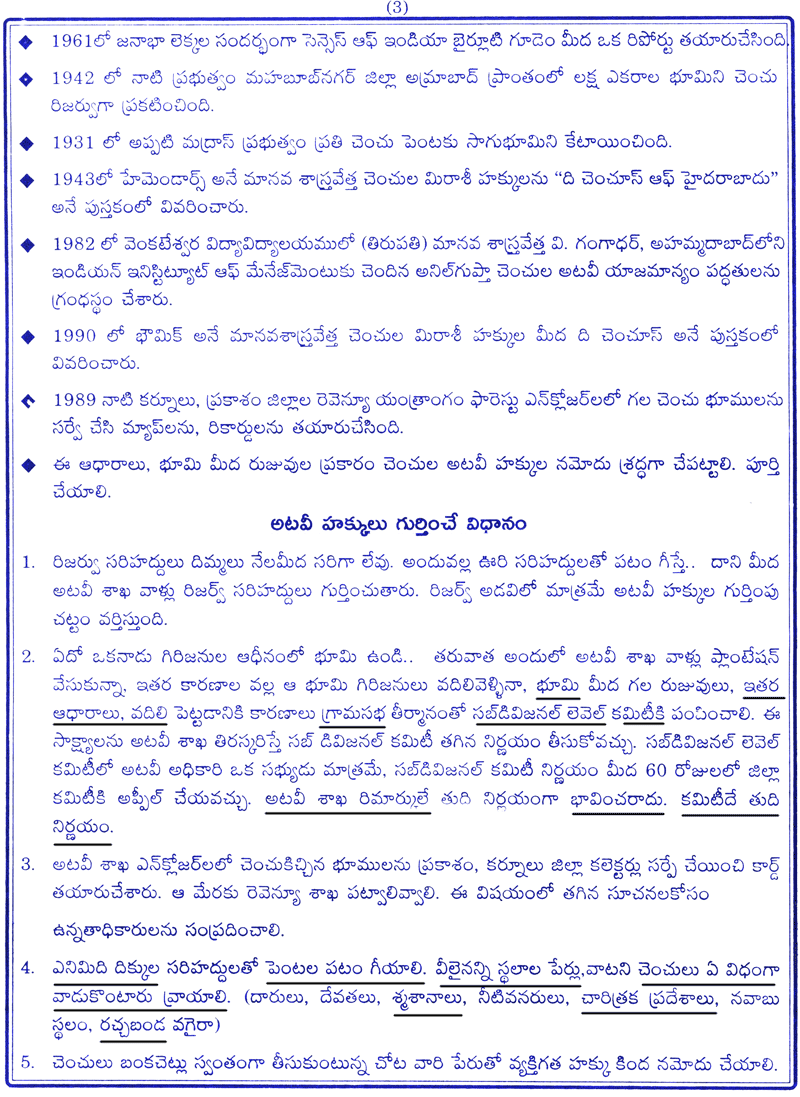 (3)
◆ 1961లో జనాభా లెక్కల సందర్భంగా సెన్సెస్ ఆఫ్ ఇండియా బైర్లూటి గూడెం మీద ఒక రిపోర్టు తయారుచేసింది.
◆ 1942 లో నాటి ప్రభుత్వం మహబూబ్‌నగర్ జిల్లా అమ్రాబాద్ ప్రాంతంలో లక్ష ఎకరాల భూమిని చెంచు
రిజర్వుగా ప్రకటించింది.
◆ 1931 లో అప్పటి మద్రాస్ ప్రభుత్వం ప్రతి చెంచు పెంటకు సాగుభూమిని కేటాయించింది.
◆ 1943లో హేమెండార్స్ అనే మానవ శాస్త్రవేత్త చెంచుల మిరాశీ హక్కులను “ది చెంచూస్ ఆఫ్ హైదరాబాదు”
అనే పుస్తకంలో వివరించారు.
◆ 1982 లో వెంకటేశ్వర విద్యావిద్యాలయములో (తిరుపతి) మానవ శాస్త్రవేత్త వి. గంగాధర్, అహమ్మదాబాద్‌లోని
ఇండియన్ ఇనిస్టిట్యూట్ ఆఫ్ మేనేజ్‌మెంటుకు చెందిన అనిల్‌గుప్తా చెంచుల అటవీ యాజమాన్యం పద్ధతులను
గ్రంధస్థం చేశారు.
◆ 1990 లో భౌమిక్ అనే మానవశాస్త్రవేత్త చెంచుల మిరాశీ హక్కుల మీద ది చెంచూస్ అనే పుస్తకంలో
వివరించారు.
◆ 1989 నాటి కర్నూలు, ప్రకాశం జిల్లాల రెవెన్యూ యంత్రాంగం ఫారెస్టు ఎన్‌క్లోజర్‌లలో గల చెంచు భూములను
సర్వే చేసి మ్యాప్‌లను, రికార్డులను తయారుచేసింది.
◆ ఈ ఆధారాలు, భూమి మీద రుజువుల ప్రకారం చెంచుల అటవీ హక్కుల నమోదు శ్రద్ధగా చేపట్టాలి. పూర్తి
చేయాలి.
అటవీ హక్కులు గుర్తించే విధానం
1. రిజర్వు సరిహద్దులు దిమ్మలు నేలమీద సరిగా లేవు. అందువల్ల ఊరి సరిహద్దులతో పటం గీస్తే.. దాని మీద
అటవీ శాఖ వాళ్లు రిజర్వ్ సరిహద్దులు గుర్తించుతారు. రిజర్వ్ అడవిలో మాత్రమే అటవీ హక్కుల గుర్తింపు
చట్టం వర్తిస్తుంది.
2. ఏదో ఒకనాడు గిరిజనుల ఆధీనంలో భూమి ఉండి.. తరువాత అందులో అటవీ శాఖ వాళ్లు ప్లాంటేషన్
వేసుకున్నా, ఇతర కారణాల వల్ల ఆ భూమి గిరిజనులు వదిలివెళ్ళినా, భూమి మీద గల రుజువులు, ఇతర
ఆధారాలు, వదిలి పెట్టడానికి కారణాలు గ్రామసభ తీర్మానంతో సబ్‌డివిజనల్ లెవెల్ కమిటీకి పంపించాలి. ఈ
సాక్ష్యాలను అటవీ శాఖ తిరస్కరిస్తే సబ్ డివిజనల్ కమిటీ తగిన నిర్ణయం తీసుకోవచ్చు. సబ్‌డివిజనల్ లెవెల్
కమిటీలో అటవీ అధికారి ఒక సభ్యుడు మాత్రమే, సబ్‌డివిజనల్ కమిటీ నిర్ణయం మీద 60 రోజులలో జిల్లా
కమిటీకి అప్పీల్ చేయవచ్చు. అటవీ శాఖ రిమార్కులే తుది నిర్ణయంగా భావించరాదు. కమిటీదే తుది
నిర్ణయం.
3. అటవీ శాఖ ఎన్‌క్లోజర్‌లలో చెంచుకిచ్చిన భూములను ప్రకాశం, కర్నూలు జిల్లా కలెక్టర్లు సర్వే చేయించి కార్డ్
తయారుచేశారు. ఆ మేరకు రెవెన్యూ శాఖ పట్వాలివ్వాలి. ఈ విషయంలో తగిన సూచనలకోసం
ఉన్నతాధికారులను సంప్రదించాలి.
4. ఎనిమిది దిక్కుల సరిహద్దులతో పెంటల పటం గీయాలి. వీలైనన్ని స్థలాల పేర్లు,వాటని చెంచులు ఏ విధంగా
వాడుకొంటారు వ్రాయాలి. (దారులు, దేవతలు, శ్మశానాలు, నీటివనరులు, చారిత్రక ప్రదేశాలు, నవాబు
స్థలం, రచ్చబండ వగైరా)
5. చెంచులు బంకచెట్లు స్వంతంగా తీసుకుంటున్న చోట వారి పేరుతో వ్యక్తిగత హక్కు కింద నమోదు చేయాలి.